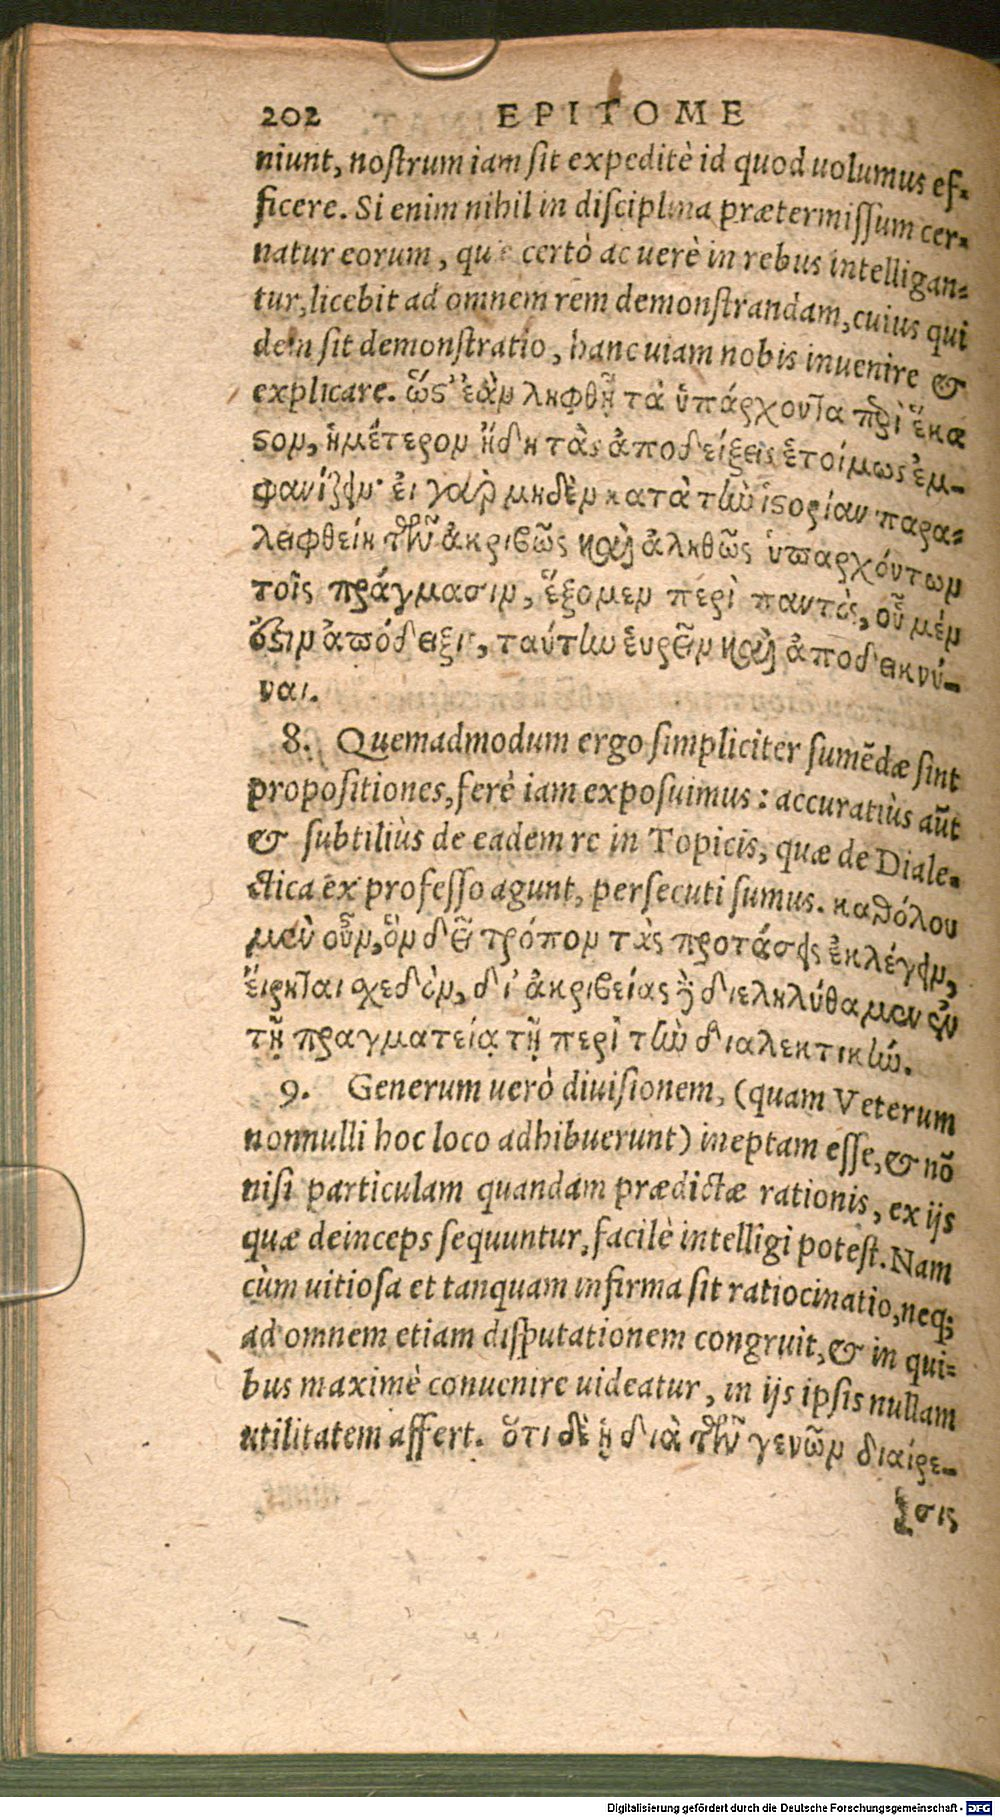 202 EPITOME
niunt, nostrum iam sit expeditè id quod uolumus ef-
ficere. Si enim nihil in disciplina prætermissum cer-
natur eorum, qu certò ac uerè in rebus intelligan-
tur, licebit ad omnem rem demonstrandam, cuius qui
dem sit demonstratio, hanc uiam nobis inuenire &
explicare. ὥστ' ἐὰν ληφθῇ τὰ ὑπάρχοντα περὶ ἕκα
στον, ἡμέτερον ἤδη τὰς ἀποδείξεις ἑτοίμως ἐμ-
φανίζειν· εἰ γὰρ μηδὲν κατὰ τὴν ἱστορίαν παρα-
λειφθείη τῶν ἀκριβῶς καὶ ἀληθῶς ὑπαρχόντων
τοῖς πράγμασιν, ἕξομεν περὶ παντὸς, οὗ μέν
ἐστιν ἀπόδειξις, ταύτην εὑρεῖν καὶ ἀποδεικνύ-
ναι.
8. Quemadmodum ergo simpliciter sumēdæ sint
propositiones, ferè iam exposuimus: accuratiùs aūt
& subtiliùs de eadem re in Topicis, quæ de Diale-
ctica ex professo agunt, persecuti sumus. καθόλου
μὲν οὖν, ὃν δεῖ τρόπον τὰς προτάσεις ἐκλέγειν,
εἴρηται σχεδὸν, δι' ἀκριβείας δὲ διεληλύθαμεν ἐν
τῇ πραγματείᾳ τῇ περὶ τὴν διαλεκτικήν.
9. Generum uerò diuisionem, (quam Veterum
nonnulli hoc loco adhibuerunt) ineptam esse, & nō
nisi particulam quandam prædictæ rationis, ex ijs
quæ deinceps sequuntur, facilè intelligi potest. Nam
cùm uitiosa et tanquam infirma sit ratiocinatio, neq;
ad omnem etiam disputationem congruit, & in qui-
bus maximè conuenire uideatur, in ijs ipsis nullam
utilitatem affert. ὅτι δὲ ἡ διὰ τῶν γενῶν διαίρε-
σις
Digitalisierung gefördert durch die Deutsche Forschungsgemeinschaft - DFG